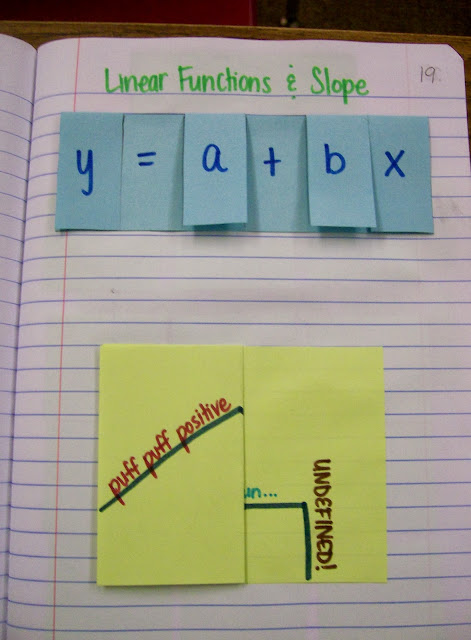 Linear Functions & Slope
19.
y = a + b x
puff puff positive
un...
UNDEFINED!